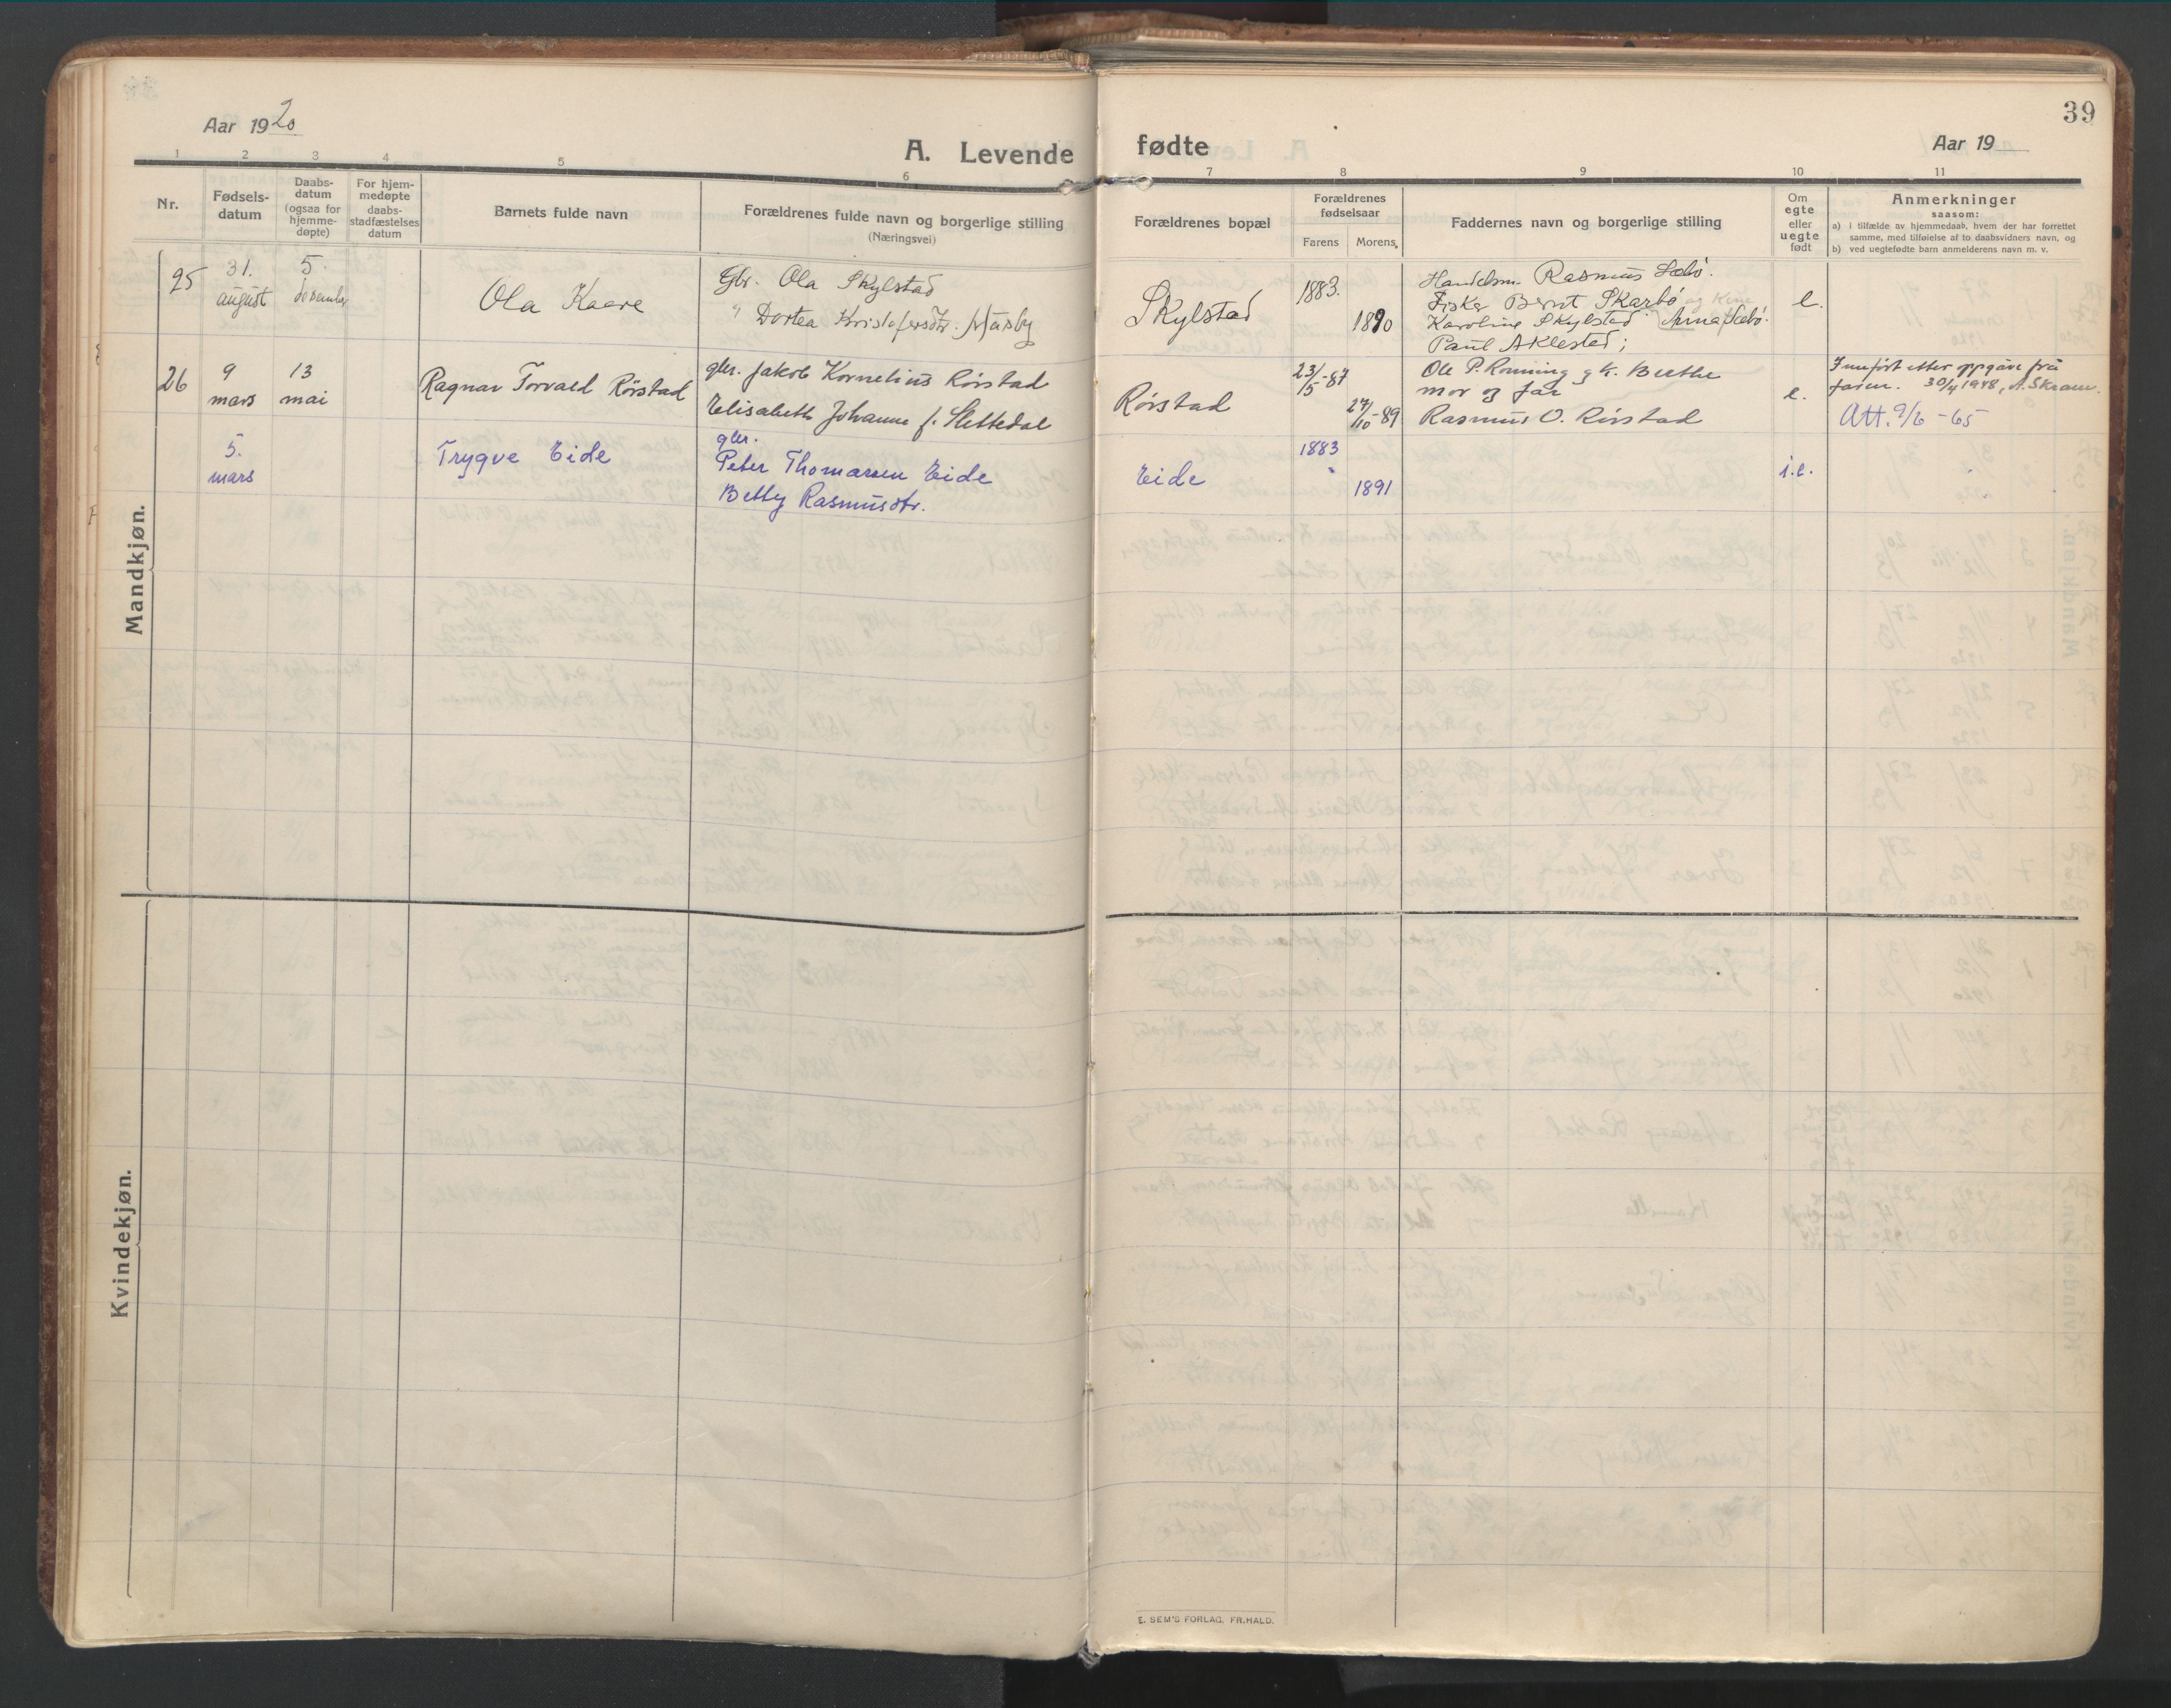 39
Aar 1920
A. Levende fødte
Aar 19
1 2 3 4 5 6 7 8 9 10 11
Nr.
Fødsels-
datum
Daabs-
datum
(ogsaa for
hjemme-
døpte)
For hjem-
medøpte
daabs-
stadfæstelses
datum
Barnets fulde navn
Forældrenes fulde navn og borgerlige stilling
(Næringsvei)
Forældrenes bopæl
Forældrenes
fødselsaar
Farens Morens
Faddernes navn og borgerlige stilling
Om
egte
eller
uegte
født
Anmerkninger
saasom:
a) i tilfælde av hjemmedaab, hvem der har forrettet
samme, med tilføielse af to daabsvidners navn, og
b) ved uegtefødte barn anmelderens navn m. v.
Mandkjøn.
25
31.
august
5.
desember
Ola Kaare
Gbr. Ola Skylstad
" Dortea Kristofersdtr.
Skylstad
1883.
1890
Handelsm. Rasmus Sæbö.
Fisker Bernt Skarbö
Karoline Skylstad Anna Sæbö.
Paul Aklestad;
e.
26
9
mars
13
mai
Ragnar Torvald Rörstad
gbr. Jakob Kornelius Rörstad
Elisabeth Johanne f. Slettedal
Rörstad
23/5-87
27/10-89
Ole P. Ronning g k. Berthe
mor og far
Rasmus O. Rörstad
e.
Innfört etter oppgåve frå
faren. 30/4 1948, A. Skram.
Att. 9/6 -65
5.
mars
Trygve Eide
gbr.
Peter Thomassen Eide
Betty Rasmusdtr.
Eide
1883
1891
i.e.
Kvindekjøn.
E. SEM'S FORLAG, FR.HALD.